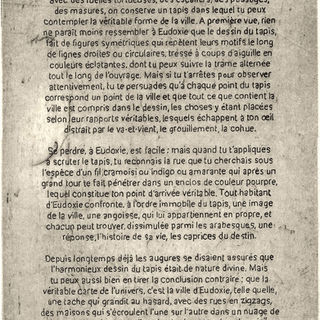 avec des ruelles tortueuses, des escaliers, des passages,
des masures, on conserve un tapis dans lequel tu peux
contempler la véritable forme de la ville. A première vue, rien
ne paraît moins ressembler à Eudoxie que le dessin du tapis,
fait de figures symétriques qui repètent leurs motifs le long
de lignes droites ou circulaires, tressé à coups d'aiguille en
couleurs éclatantes, dont tu peux suivre la trame alternée
tout le long de l'ouvrage. Mais si tu t'arrêtes pour observer
attentivement, tu te persuades qu'à chaque point du tapis
correspond un point de la ville et que tout ce que contient la
ville est compris dans le dessin, les choses y étant placées
selon leur rapports véritables, lesquels échappent à ton œil
distrait par le va-et-vient, le grouillement, la cohue.
Se perdre, à Eudoxie, est facile : mais quand tu t'appliques
à scruter le tapis, tu reconnais la rue que tu cherchais sous
l'espèce d'un fil cramoisi ou indigo ou amarante qui après un
grand tour te fait pénétrer dans un enclos de couleur pourpre,
lequel constitue ton point d'arrivée véritable. Tout habitant
d'Eudoxie confronte, à l'ordre immobile du tapis, une image
de la ville, une angoisse, qui lui appartiennent en propre, et
chacup peut trouver, dissimulée parmi les arabesques, une
réponse, l'histoire de sa vie, les caprices du destin.
Depuis longtemps déjà les augures se disaient assurés que
l'harmonieux dessin du tapis était de nature divine. Mais
tu peux aussi bien en tirer la conclusion contraire : que la
véritable carte de l'univers, c'est la ville d'Eudoxie, telle quelle,
une tache qui grandit au hasard, avec des rues en zigzags,
des maisons qui s'écroulent l'une sur l'autre dans un nuage de